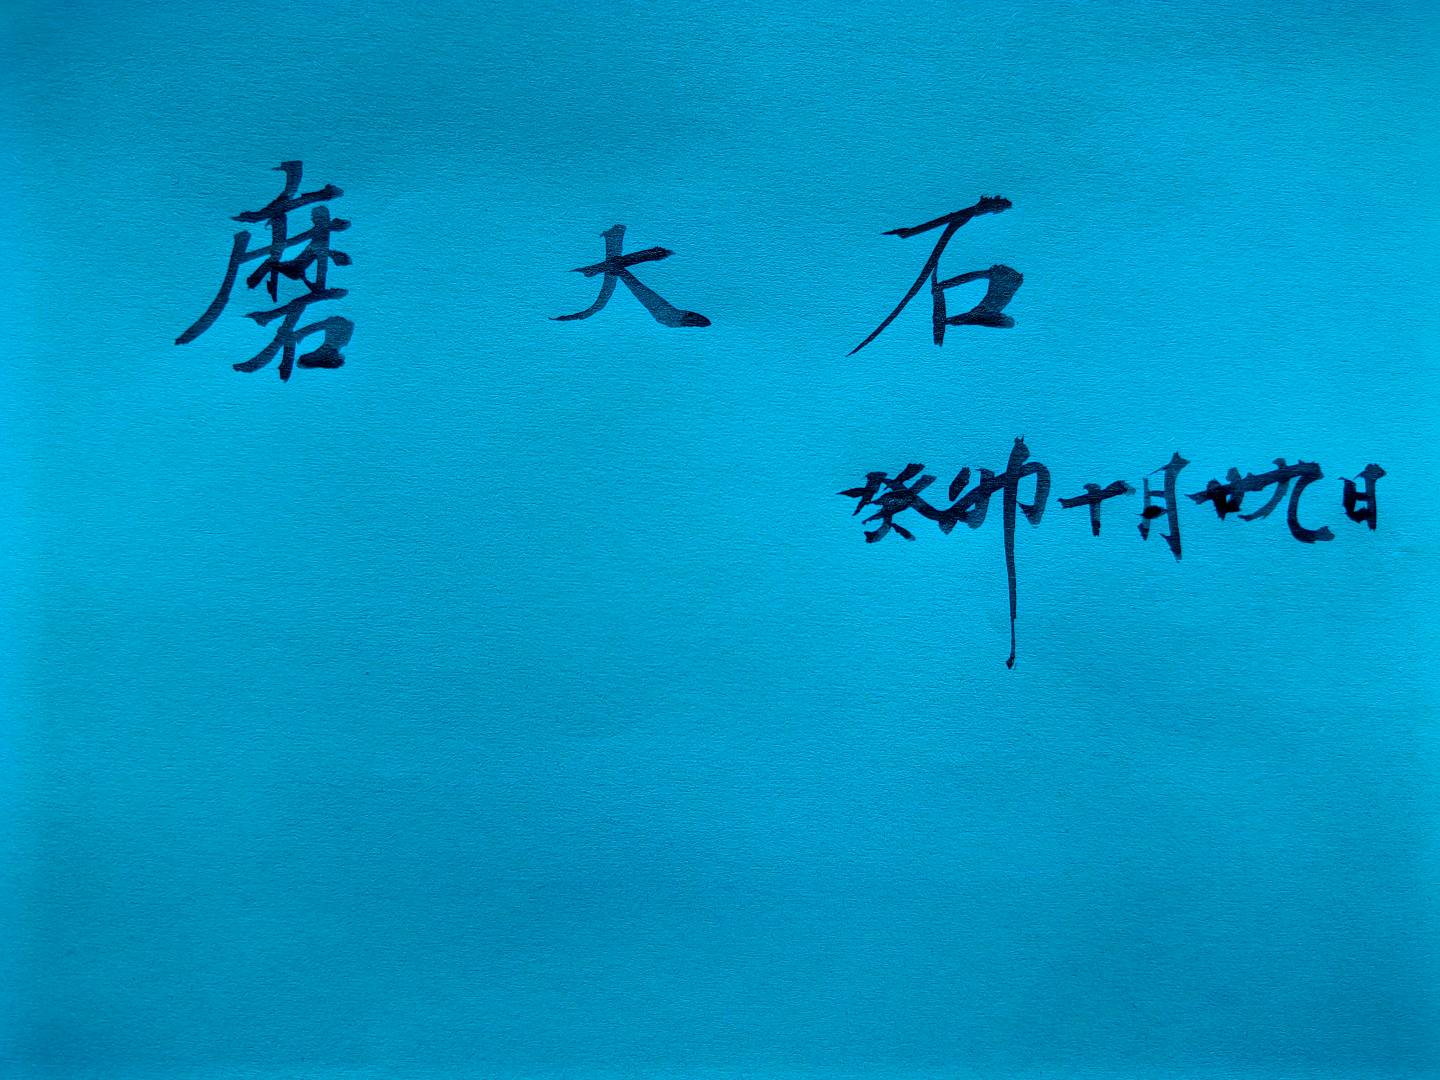 磨大石
癸卯十月廿九日